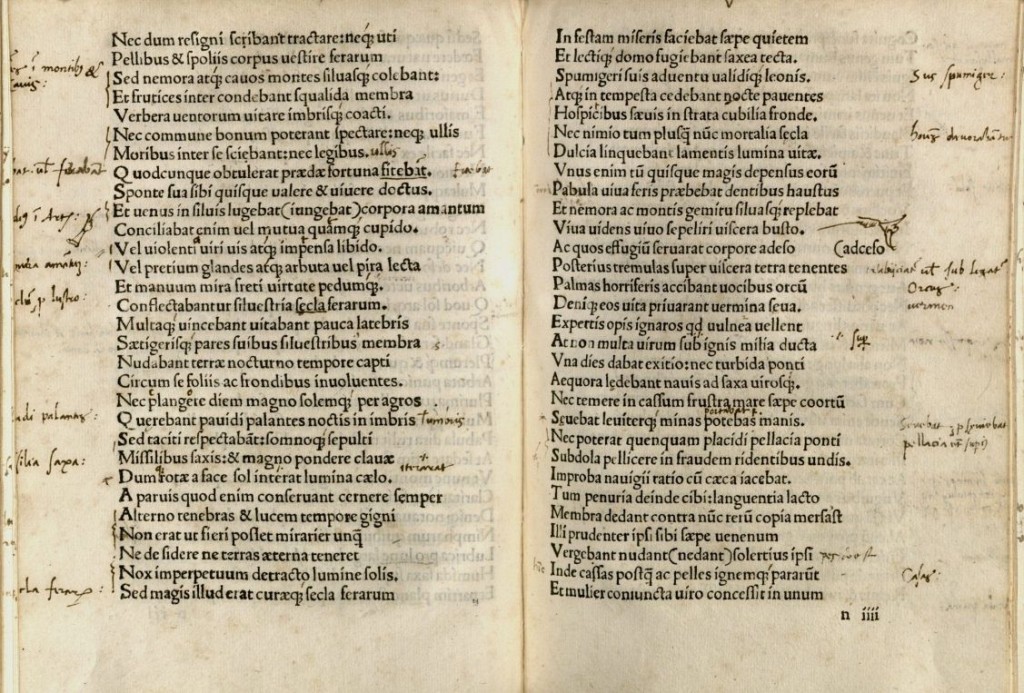 Nec dum resigni scribant tractare: neq; uti
Pellibus & spoliis corpus uestire ferarum
Sed nemora atq; cauos montes siluasq; colebant:
Et frutices inter condebant squalida membra
Verbera uentorum uitare imbrisq; coacti.
Nec commune bonum poterant spectare: neq; ullis
Moribus inter se sciebant: nec legibus.
Quodcunque obtulerat prædæ fortuna fitebat.
Sponte sua sibi quisque ualere & uiuere doctus.
Et uenus in siluis lugebat (iungebat) corpora amantum
Conciliabat enim uel mutua quámq; cupido.
Vel violenti uiri uis atq; impensa libido.
Vel pretium glandes atq; arbuta uel pira lecta
Et manuum mira freti uirtute pedumq;.
Conflectabantur siluestria secla ferarum.
Multaq; uincebant uitabant pauca latebris
Sætigerisq; pares suibus siluestribus membra
Nudabant terræ nocturno tempore capti
Circum se foliis ac frondibus inuoluentes.
Nec plangere diem magno solemq; per agros
Querebant pauidi palantes noctis in imbris
Sed taciti respectabāt: somnoq; sepulti
Missilibus saxis: & magno pondere clauæ
Dum totæ a face sol interat lumina cælo.
A paruis quod enim conseruant cernere semper
Alterno tenebras & lucem tempore gigni
Non erat ut fieri posset mirarier unq̄
Ne de sidere ne terras æterna teneret
Nox imperpetuum detracto lumine solis.
Sed magis illud erat curæq; secla ferarum
In festam miseris faciebat sæpe quietem
Et lectiq; domo fugiebant saxea tecta.
Spumigeri suis aduentu ualidiq; leonis.
Atq; in tempesta cedebant nocte pauentes
Hospicibus sæuis in strata cubilia fronde.
Nec nimio tum plusq; nūc mortalia secla
Dulcia linquebant lamentis lumina uitæ.
Vnus enim tū quisque magis depensus eorū
Pabula uiua feris præbebat dentibus haustus
Et nemora ac montis gemitu siluasq; replebat
Viua uidens uiuo sepeliri uiscera busto.
Ac quos effugiū seruarat corpore adeso
Posterius tremulas super uiscera tetra tenentes
Palmas horriferis accibant uocibus orcū
Deniq; eos uita priuarant uermina seua.
Expertis opis ignaros qd uulnea uellent
At non multa uirum sub ignis milia ducta
Vna dies dabat exitio: nec turbida ponti
Aequora lędebant nauis ad saxa uirosq;.
Nec temere in cassum frustra mare sæpe coortū
Seuebat leuiterq; minas potebas manis.
Nec poterat quenquam placidi pellacia ponti
Subdola pellicere in fraudem ridentibus undis.
Improba nauigii ratio cū cæca iacebat.
Tum penuria deinde cibi: languentia lacto
Membra dedant contra nūc rerū copia mersast
Illi prudenter ipsi sibi sæpe uenenum
Vergebant nudant (nedant) solertius ipsi
Inde cassas postq̄ ac pelles ignemq; pararūt
Et mulier coniuncta uiro concessit in unum
n iiii
Sus spumiger:
Orcus